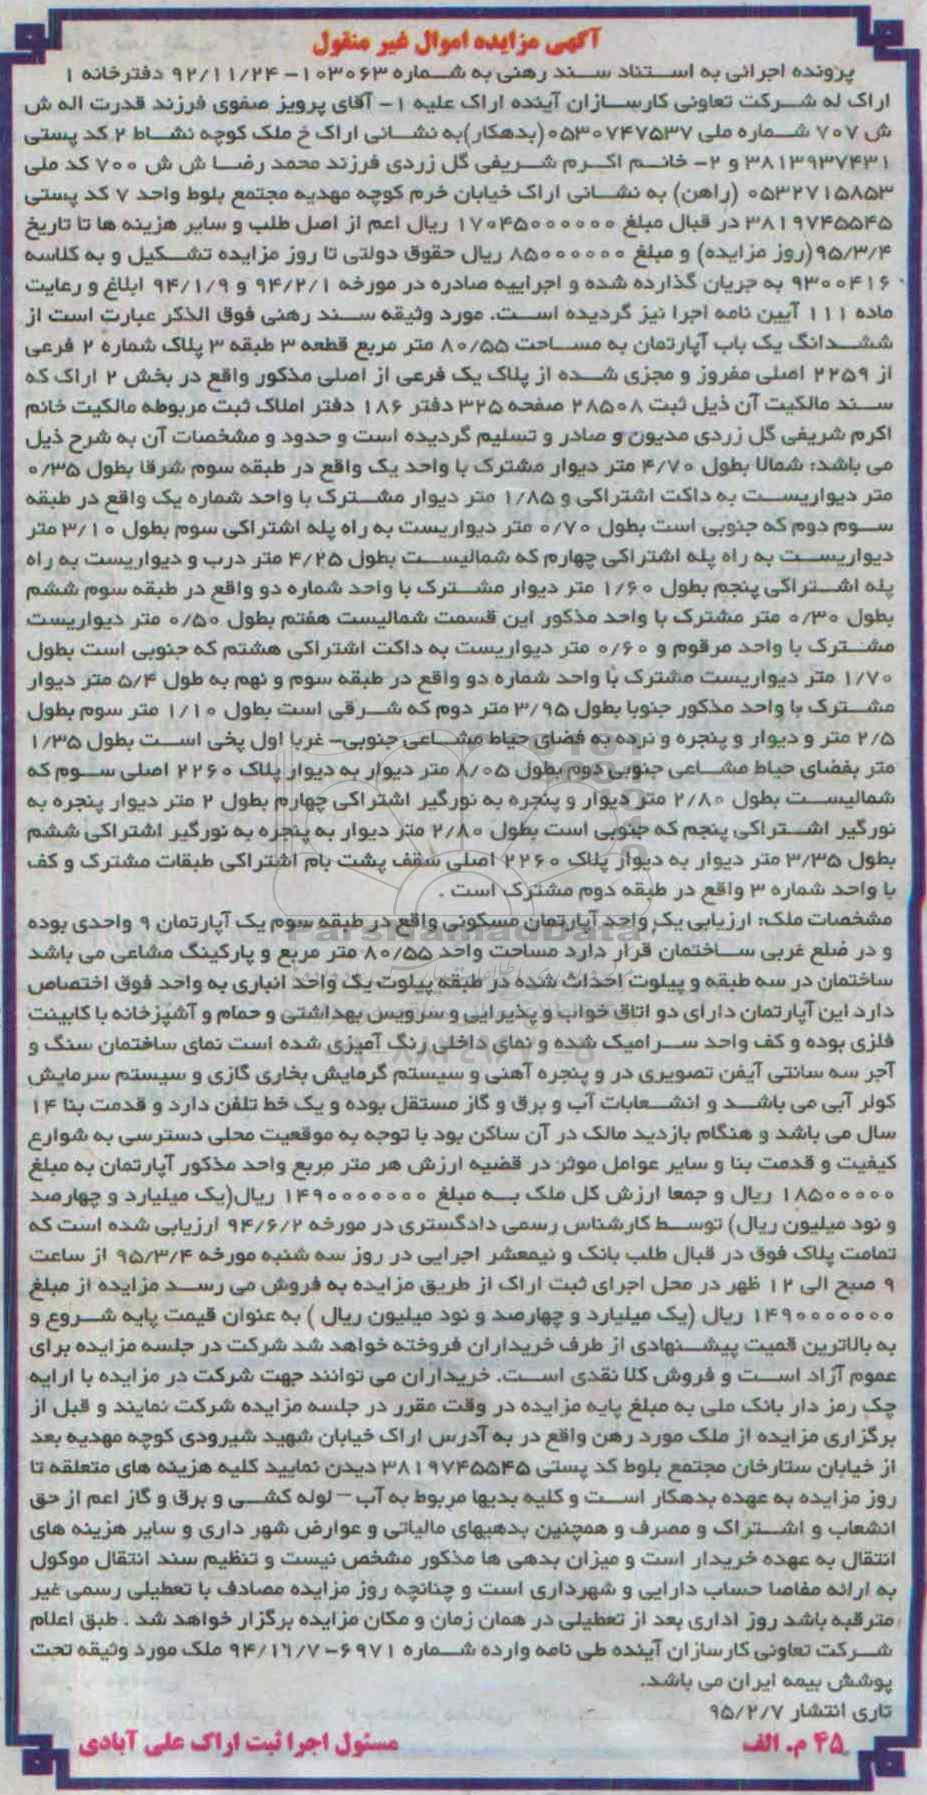 آگهی مزایده اموال غیر منقول
پرونده اجرائی به استناد سند رهنی به شماره ۱۰۳۰۶۳- ۹۲/۱۱/۲۴ دفترخانه ۱
اراک له شرکت تعاونی کارسازان آینده اراک علیه ۱- آقای پرویز صفوی فرزند قدرت اله ش
ش ۷۰۷ شماره ملی ۰۵۳۰۷۴۷۵۳۷ (بدهکار) به نشانی اراک خ ملک کوچه نشاط ۲ کد پستی
۳۸۱۳۹۳۷۴۳۱ و ۲- خانم اکرم شریفی گل زردی فرزند محمد رضا ش ش ۷۰۰ کد ملی
۰۵۳۲۷۱۵۸۵۳ (راهن) به نشانی اراک خیابان خرم کوچه مهدیه مجتمع بلوط واحد ۷ کد پستی
۳۸۱۹۷۴۵۵۴۵ در قبال مبلغ ۱۷۰۴۵۰۰۰۰۰۰ ریال اعم از اصل طلب و سایر هزینه ها تا تاریخ
۹۵/۳/۴ (روز مزایده) و مبلغ ۸۵۰۰۰۰۰۰ ریال حقوق دولتی تا روز مزایده تشکیل و به کلاسه
۹۳۰۰۴۱۶ به جریان گذارده شده و اجراییه صادره در مورخه ۹۴/۲/۱ و ۹۴/۱/۹ ابلاغ و رعایت
ماده ۱۱۱ آیین نامه اجرا نیز گردیده است. مورد وثیقه سند رهنی فوق الذکر عبارت است از
ششدانگ یک باب آپارتمان به مساحت ۸۰/۵۵ متر مربع قطعه ۳ طبقه ۳ پلاک شماره ۲ فرعی
از ۲۲۵۹ اصلی مفروز و مجزی شده از پلاک یک فرعی از اصلی مذکور واقع در بخش ۲ اراک که
سند مالکیت آن ذیل ثبت ۲۸۵۰۸ صفحه ۳۲۵ دفتر ۱۸۶ دفتر املاک ثبت مربوطه مالکیت خانم
اکرم شریفی گل زردی مدیون و صادر و تسلیم گردیده است و حدود و مشخصات آن به شرح ذیل
می باشد: شمالا بطول ۴/۷۰ متر دیوار مشترک با واحد یک واقع در طبقه سوم شرقا بطول ۰/۳۵
متر دیواریست به داکت اشتراکی و ۱/۸۵ متر دیوار مشترک با واحد شماره یک واقع در طبقه
سوم دوم که جنوبی است بطول ۰/۷۰ متر دیواریست به راه پله اشتراکی سوم بطول ۳/۱۰ متر
دیواریست به راه پله اشتراکی چهارم که شمالیست بطول ۴/۲۵ متر درب و دیواریست به راه
پله اشتراکی پنجم بطول ۱/۶۰ متر دیوار مشترک با واحد شماره دو واقع در طبقه سوم ششم
بطول ۰/۳۰ متر مشترک با واحد مذکور این قسمت شمالیست هفتم بطول ۰/۵۰ متر دیواریست
مشترک با واحد مرقوم و ۰/۶۰ متر دیواریست به داکت اشتراکی هشتم که جنوبی است بطول
۱/۷۰ متر دیواریست مشترک با واحد شماره دو واقع در طبقه سوم و نهم به طول ۵/۴ متر دیوار
مشترک با واحد مذکور جنوبا بطول ۳/۹۵ متر دوم که شرقی است بطول ۱/۱۰ متر سوم بطول
۲/۵ متر و دیوار و پنجره و نرده به فضای حیاط مشاعی جنوبی- غربا اول پخی است بطول ۱/۳۵
متر بفضای حیاط مشاعی جنوبی دوم بطول ۸/۰۵ متر دیوار به دیوار پلاک ۲۲۶۰ اصلی سوم که
شمالیست بطول ۲/۸۰ متر دیوار و پنجره به نورگیر اشتراکی چهارم بطول ۲ متر دیوار پنجره به
نورگیر اشتراکی پنجم که جنوبی است بطول ۲/۸۰ متر دیوار به پنجره به نورگیر اشتراکی ششم
بطول ۳/۳۵ متر دیوار به دیوار پلاک ۲۲۶۰ اصلی سقف پشت بام اشتراکی طبقات مشترک و کف
با واحد شماره ۳ واقع در طبقه دوم مشترک است .
مشخصات ملک: ارزیابی یک واحد آپارتمان مسکونی واقع در طبقه سوم یک آپارتمان ۹ واحدی بوده
و در ضلع غربی ساختمان قرار دارد مساحت واحد ۸۰/۵۵ متر مربع و پارکینگ مشاعی می باشد
ساختمان در سه طبقه و پیلوت احداث شده در طبقه پیلوت یک واحد انباری به واحد فوق اختصاص
دارد این آپارتمان دارای دو اتاق خواب و پذیرایی و سرویس بهداشتی و حمام و آشپزخانه با کابینت
فلزی بوده و کف واحد سرامیک شده و نمای داخلی رنگ آمیزی شده است نمای ساختمان سنگ و
آجر سه سانتی آیفن تصویری در و پنجره آهنی و سیستم گرمایش بخاری گازی و سیستم سرمایش
کولر آبی می باشد و انشعابات آب و برق و گاز مستقل بوده و یک خط تلفن دارد و قدمت بنا ۱۴
سال می باشد و هنگام بازدید مالک در آن ساکن بود با توجه به موقعیت محلی دسترسی به شوارع
کیفیت و قدمت بنا و سایر عوامل موثر در قضیه ارزش هر متر مربع واحد مذکور آپارتمان به مبلغ
۱۸۵۰۰۰۰۰ ریال و جمعا ارزش کل ملک به مبلغ ۱۴۹۰۰۰۰۰۰۰ ریال(یک میلیارد و چهارصد
و نود میلیون ریال) توسط کارشناس رسمی دادگستری در مورخه ۹۴/۶/۲ ارزیابی شده است که
تمامت پلاک فوق در قبال طلب بانک و نیمعشر اجرایی در روز سه شنبه مورخه ۹۵/۳/۴ از ساعت
۹ صبح الی ۱۲ ظهر در محل اجرای ثبت اراک از طریق مزایده به فروش می رسد مزایده از مبلغ
۱۴۹۰۰۰۰۰۰۰ ریال (یک میلیارد و چهارصد و نود میلیون ریال ) به عنوان قیمت پایه شروع و
به بالاترین قمیت پیشنهادی از طرف خریداران فروخته خواهد شد شرکت در جلسه مزایده برای
عموم آزاد است و فروش کلا نقدی است. خریداران می توانند جهت شرکت در مزایده با ارایه
چک رمز دار بانک ملی به مبلغ پایه مزایده در وقت مقرر در جلسه مزایده شرکت نمایند و قبل از
برگزاری مزایده از ملک مورد رهن واقع در به آدرس اراک خیابان شهید شیرودی کوچه مهدیه بعد
از خیابان ستارخان مجتمع بلوط کد پستی ۳۸۱۹۷۴۵۵۴۵ دیدن نمایید کلیه هزینه های متعلقه تا
روز مزایده به عهده بدهکار است و کلیه بدیها مربوط به آب – لوله کشی و برق و گاز اعم از حق
انشعاب و اشتراک و مصرف و همچنین بدهیهای مالیاتی و عوارض شهر داری و سایر هزینه های
انتقال به عهده خریدار است و میزان بدهی ها مذکور مشخص نیست و تنظیم سند انتقال موکول
به ارائه مفاصا حساب دارایی و شهرداری است و چنانچه روز مزایده مصادف با تعطیلی رسمی غیر
مترقبه باشد روز اداری بعد از تعطیلی در همان زمان و مکان مزایده برگزار خواهد شد . طبق اعلام
شرکت تعاونی کارسازان آینده طی نامه وارده شماره ۶۹۷۱-۹۴/۱۶/۷ ملک مورد وثیقه تحت
پوشش بیمه ایران می باشد.
تاری انتشار ۹۵/۲/۷
۴۵ م. الف
مسئول اجرا ثبت اراک علی آبادی